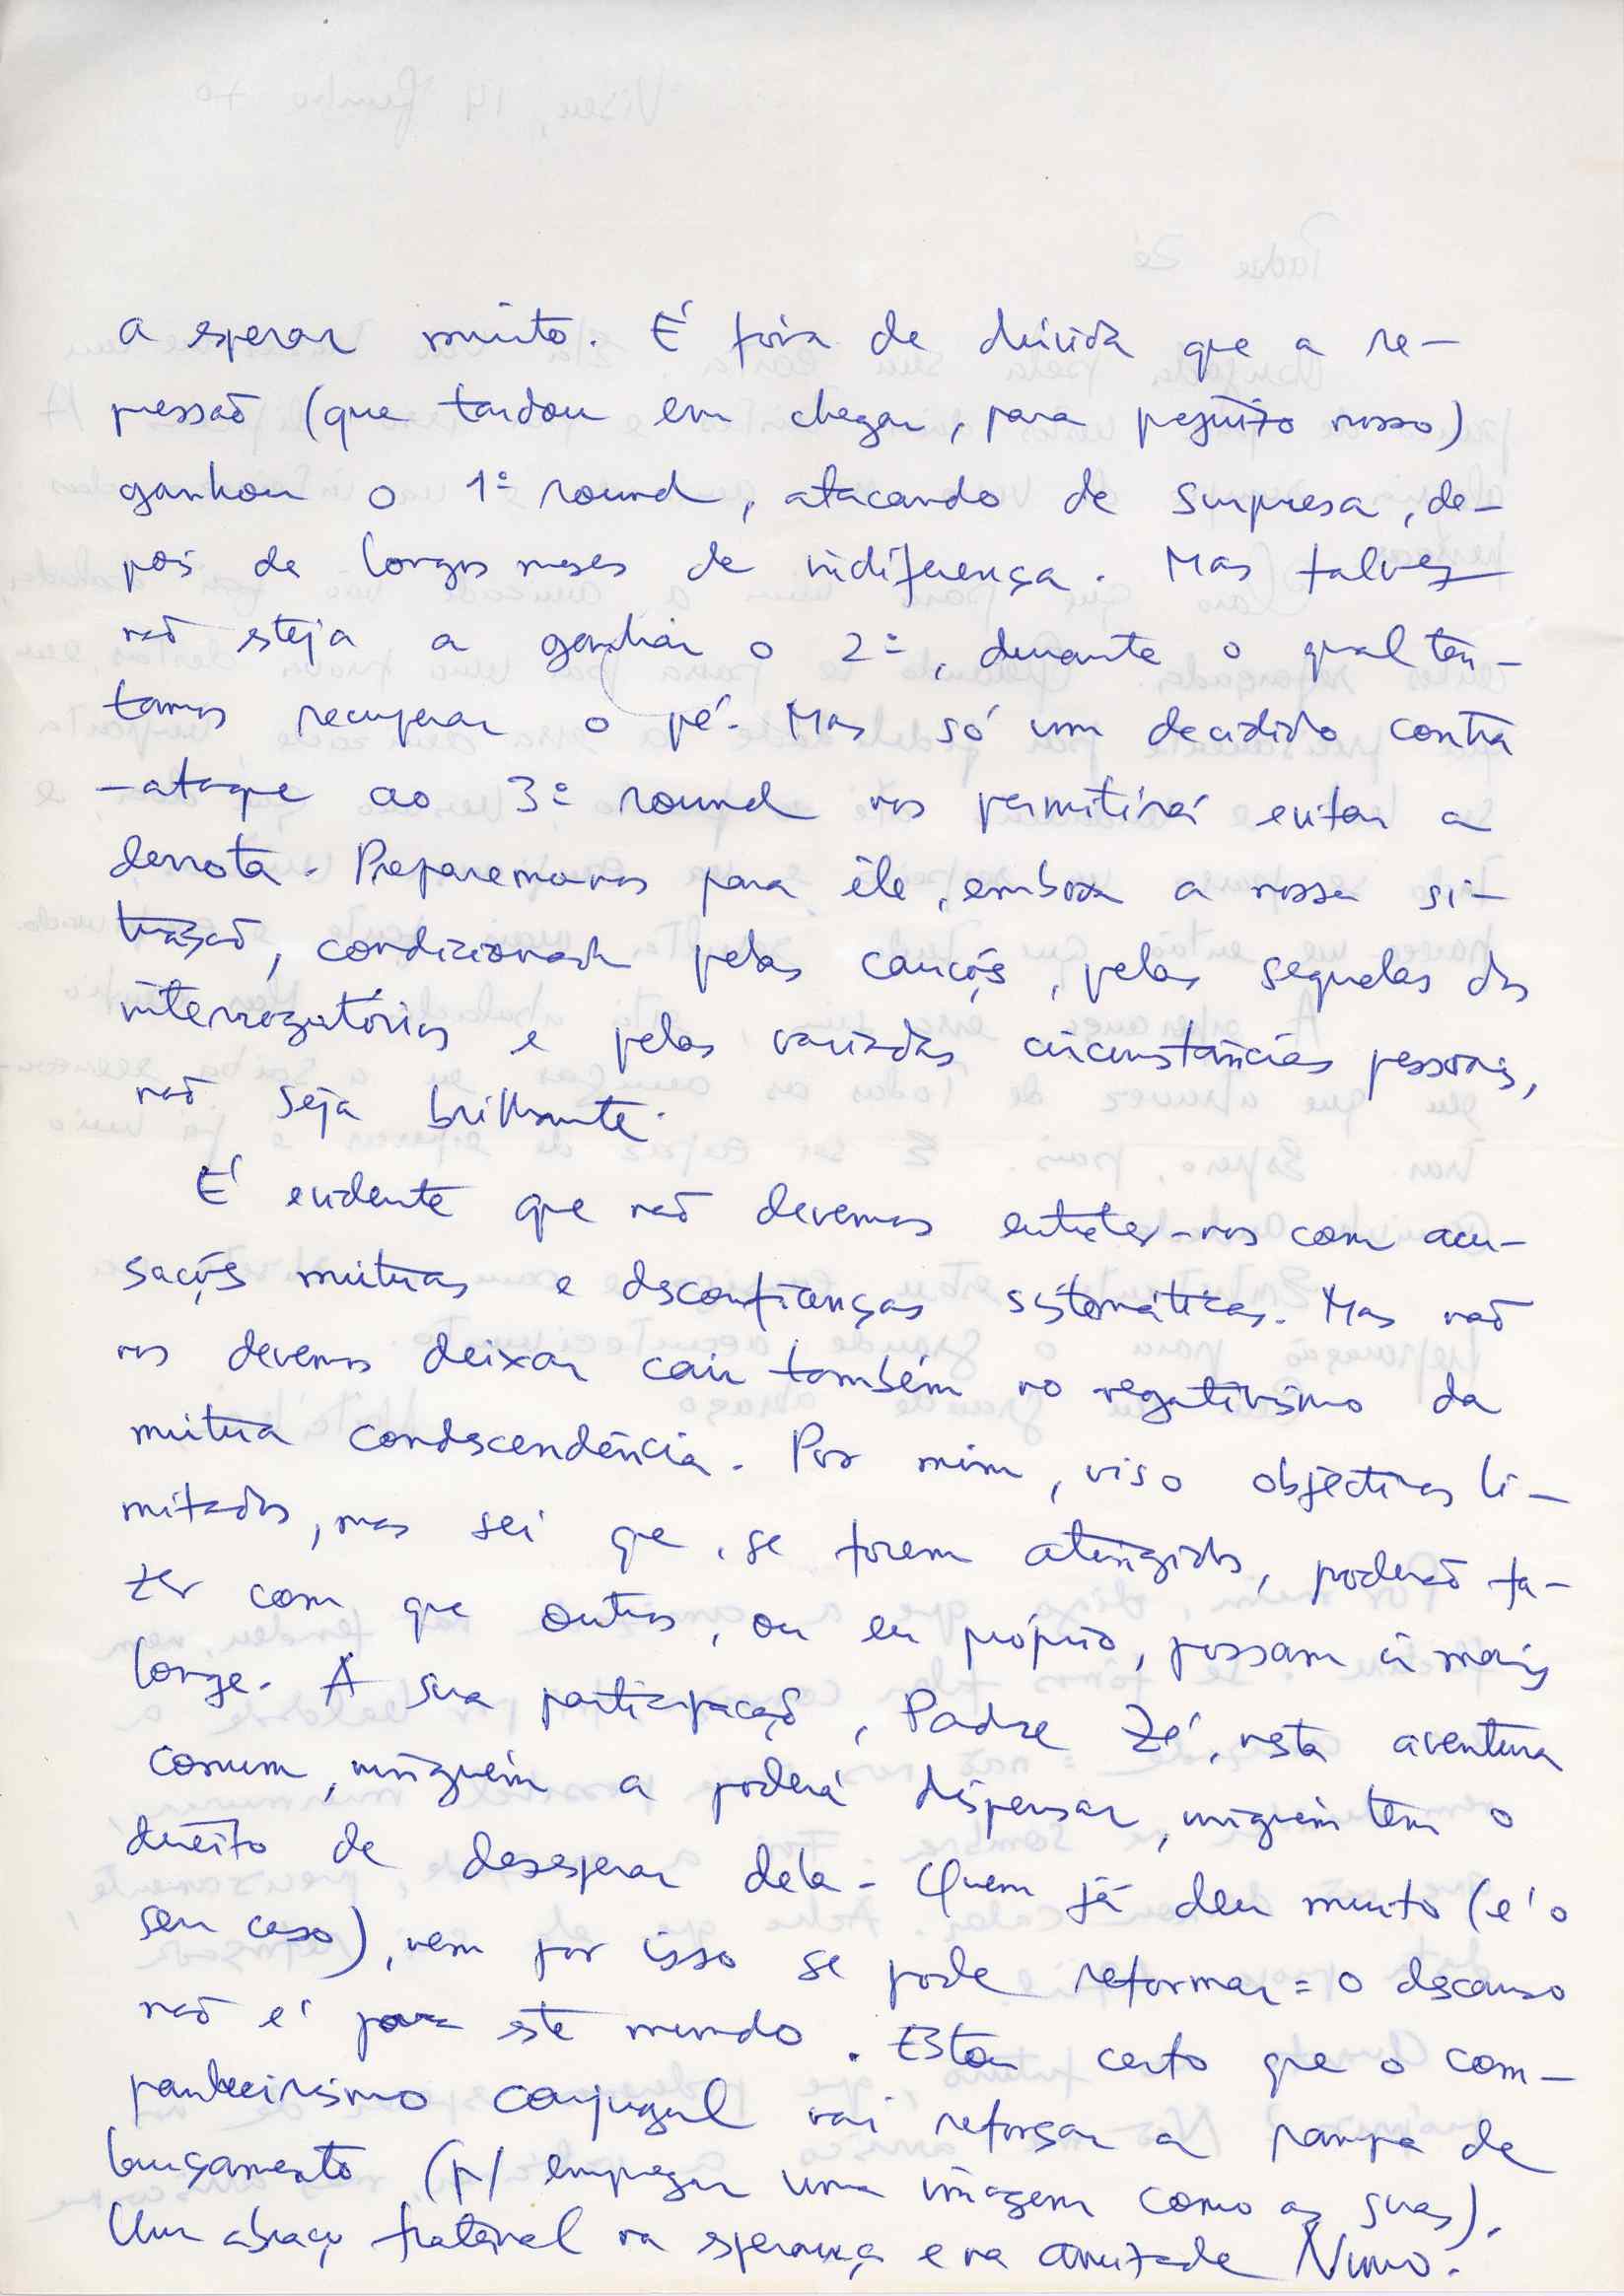 a esperar muito. É fora de dúvida que a re-
pressão (que tardou em chegar, para prejuízo nosso)
ganhou o 1º round, atacando de surpresa, de-
pois de longos meses de indiferença. Mas talvez
não esteja a ganhar o 2º, durante o qual ten-
tamos recuperar o pé. Mas só um decidido contra
-ataque ao 3º round nos permitirá evitar a
derrota. Preparemo-nos para êle, embora a nossa si-
tuação, condicionada pelas cauções, pelas sequelas dos
interrogatórios e pelas variadas circunstâncias pessoais,
não seja brilhante.
É evidente que não devemos entreter-nos com acu-
sações mútuas e desconfianças sistemáticas. Mas não
nos devemos deixar cair também no negativismo da
mútua condescendência. Por mim, viso objectivos li-
mitados, mas sei que, se forem atingidos, poderão fa-
zer com que outros, ou eu próprio, possam ir mais
longe. A sua participação, Padre Zé, nesta aventura
comum, ninguém a poderá dispensar, ninguém tem o
direito de desesperar dela. Quem já deu muito (é o
seu caso), nem por isso se pode reformar = o descanso
não é para este mundo. Estou certo que o com-
panheirismo conjugal vai reforçar a rampa de
lançamento (p/ empregar uma imagem como as suas).
Um abraço fraternal na esperança e na amizade Nuno.